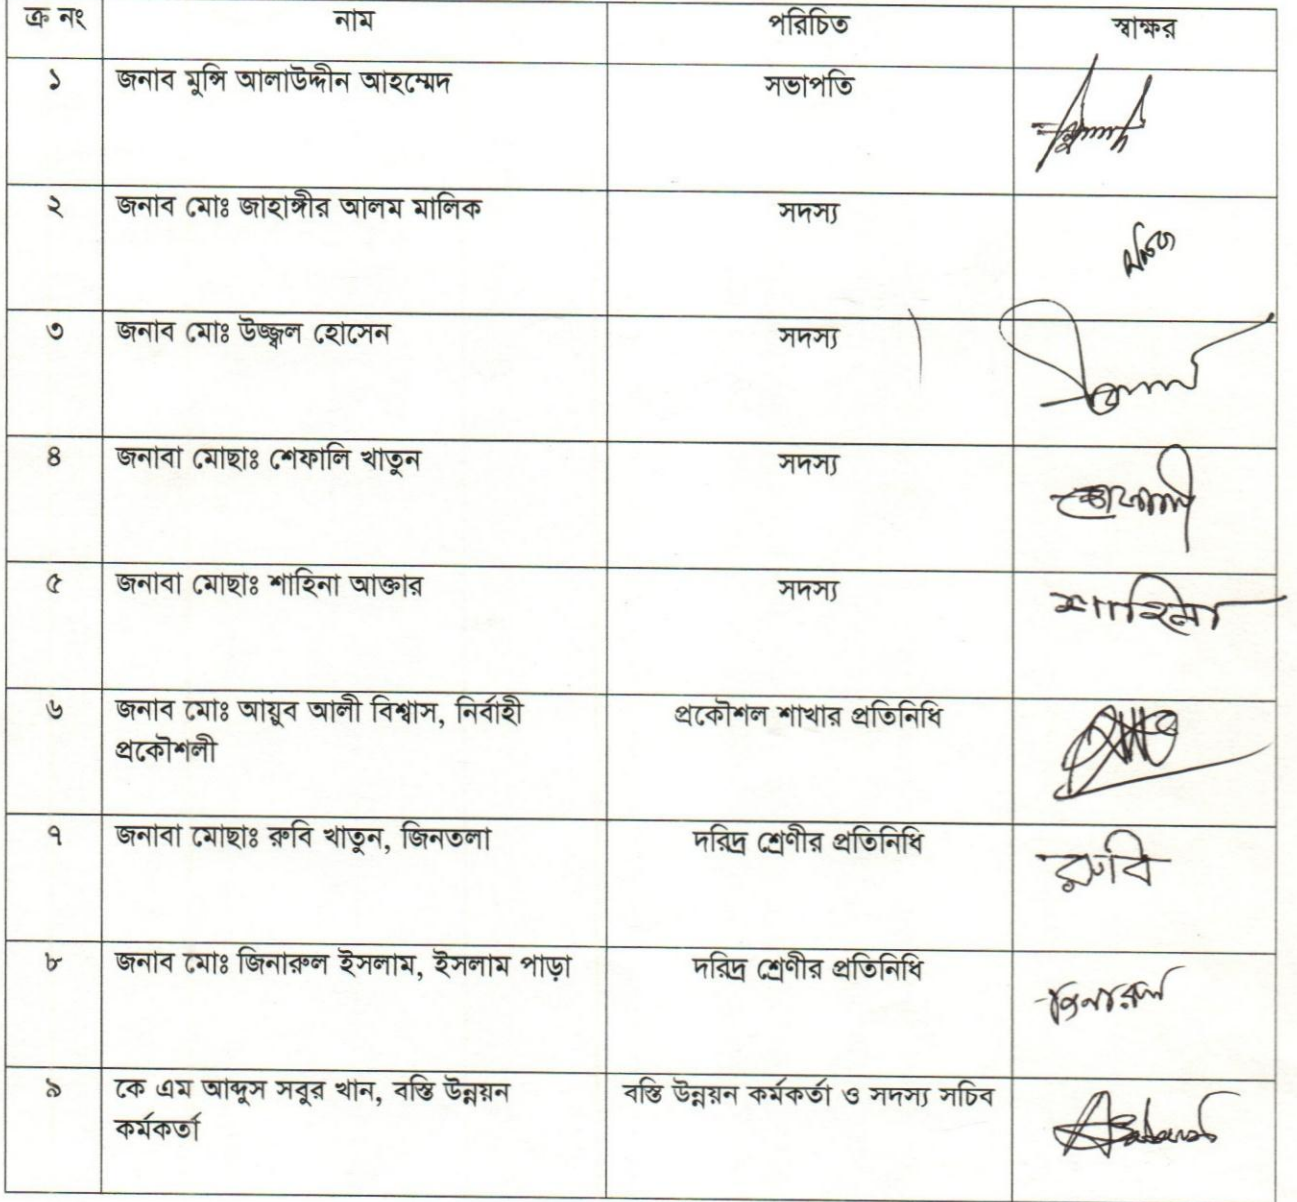 ক্র নং নাম পরিচিত স্বাক্ষর
১ জনাব মুন্সি আলাউদ্দীন আহম্মেদ সভাপতি
২ জনাব মোঃ জাহাঙ্গীর আলম মালিক সদস্য
৩ জনাব মোঃ উজ্জ্বল হোসেন সদস্য
৪ জনাবা মোছাঃ শেফালি খাতুন সদস্য
শেফালী
৫ জনাবা মোছাঃ শাহিনা আক্তার সদস্য
শাহিনা
৬ জনাব মোঃ আয়ুব আলী বিশ্বাস, নির্বাহী প্রকৌশল শাখার প্রতিনিধি
প্রকৌশলী
৭ জনাবা মোছাঃ রুবি খাতুন, জিনতলা দরিদ্র শ্রেণীর প্রতিনিধি
রুবি
৮ জনাব মোঃ জিনারুল ইসলাম, ইসলাম পাড়া দরিদ্র শ্রেণীর প্রতিনিধি
জিনারুল
৯ কে এম আব্দুস সবুর খান, বস্তি উন্নয়ন বস্তি উন্নয়ন কর্মকর্তা ও সদস্য সচিব
কর্মকর্তা